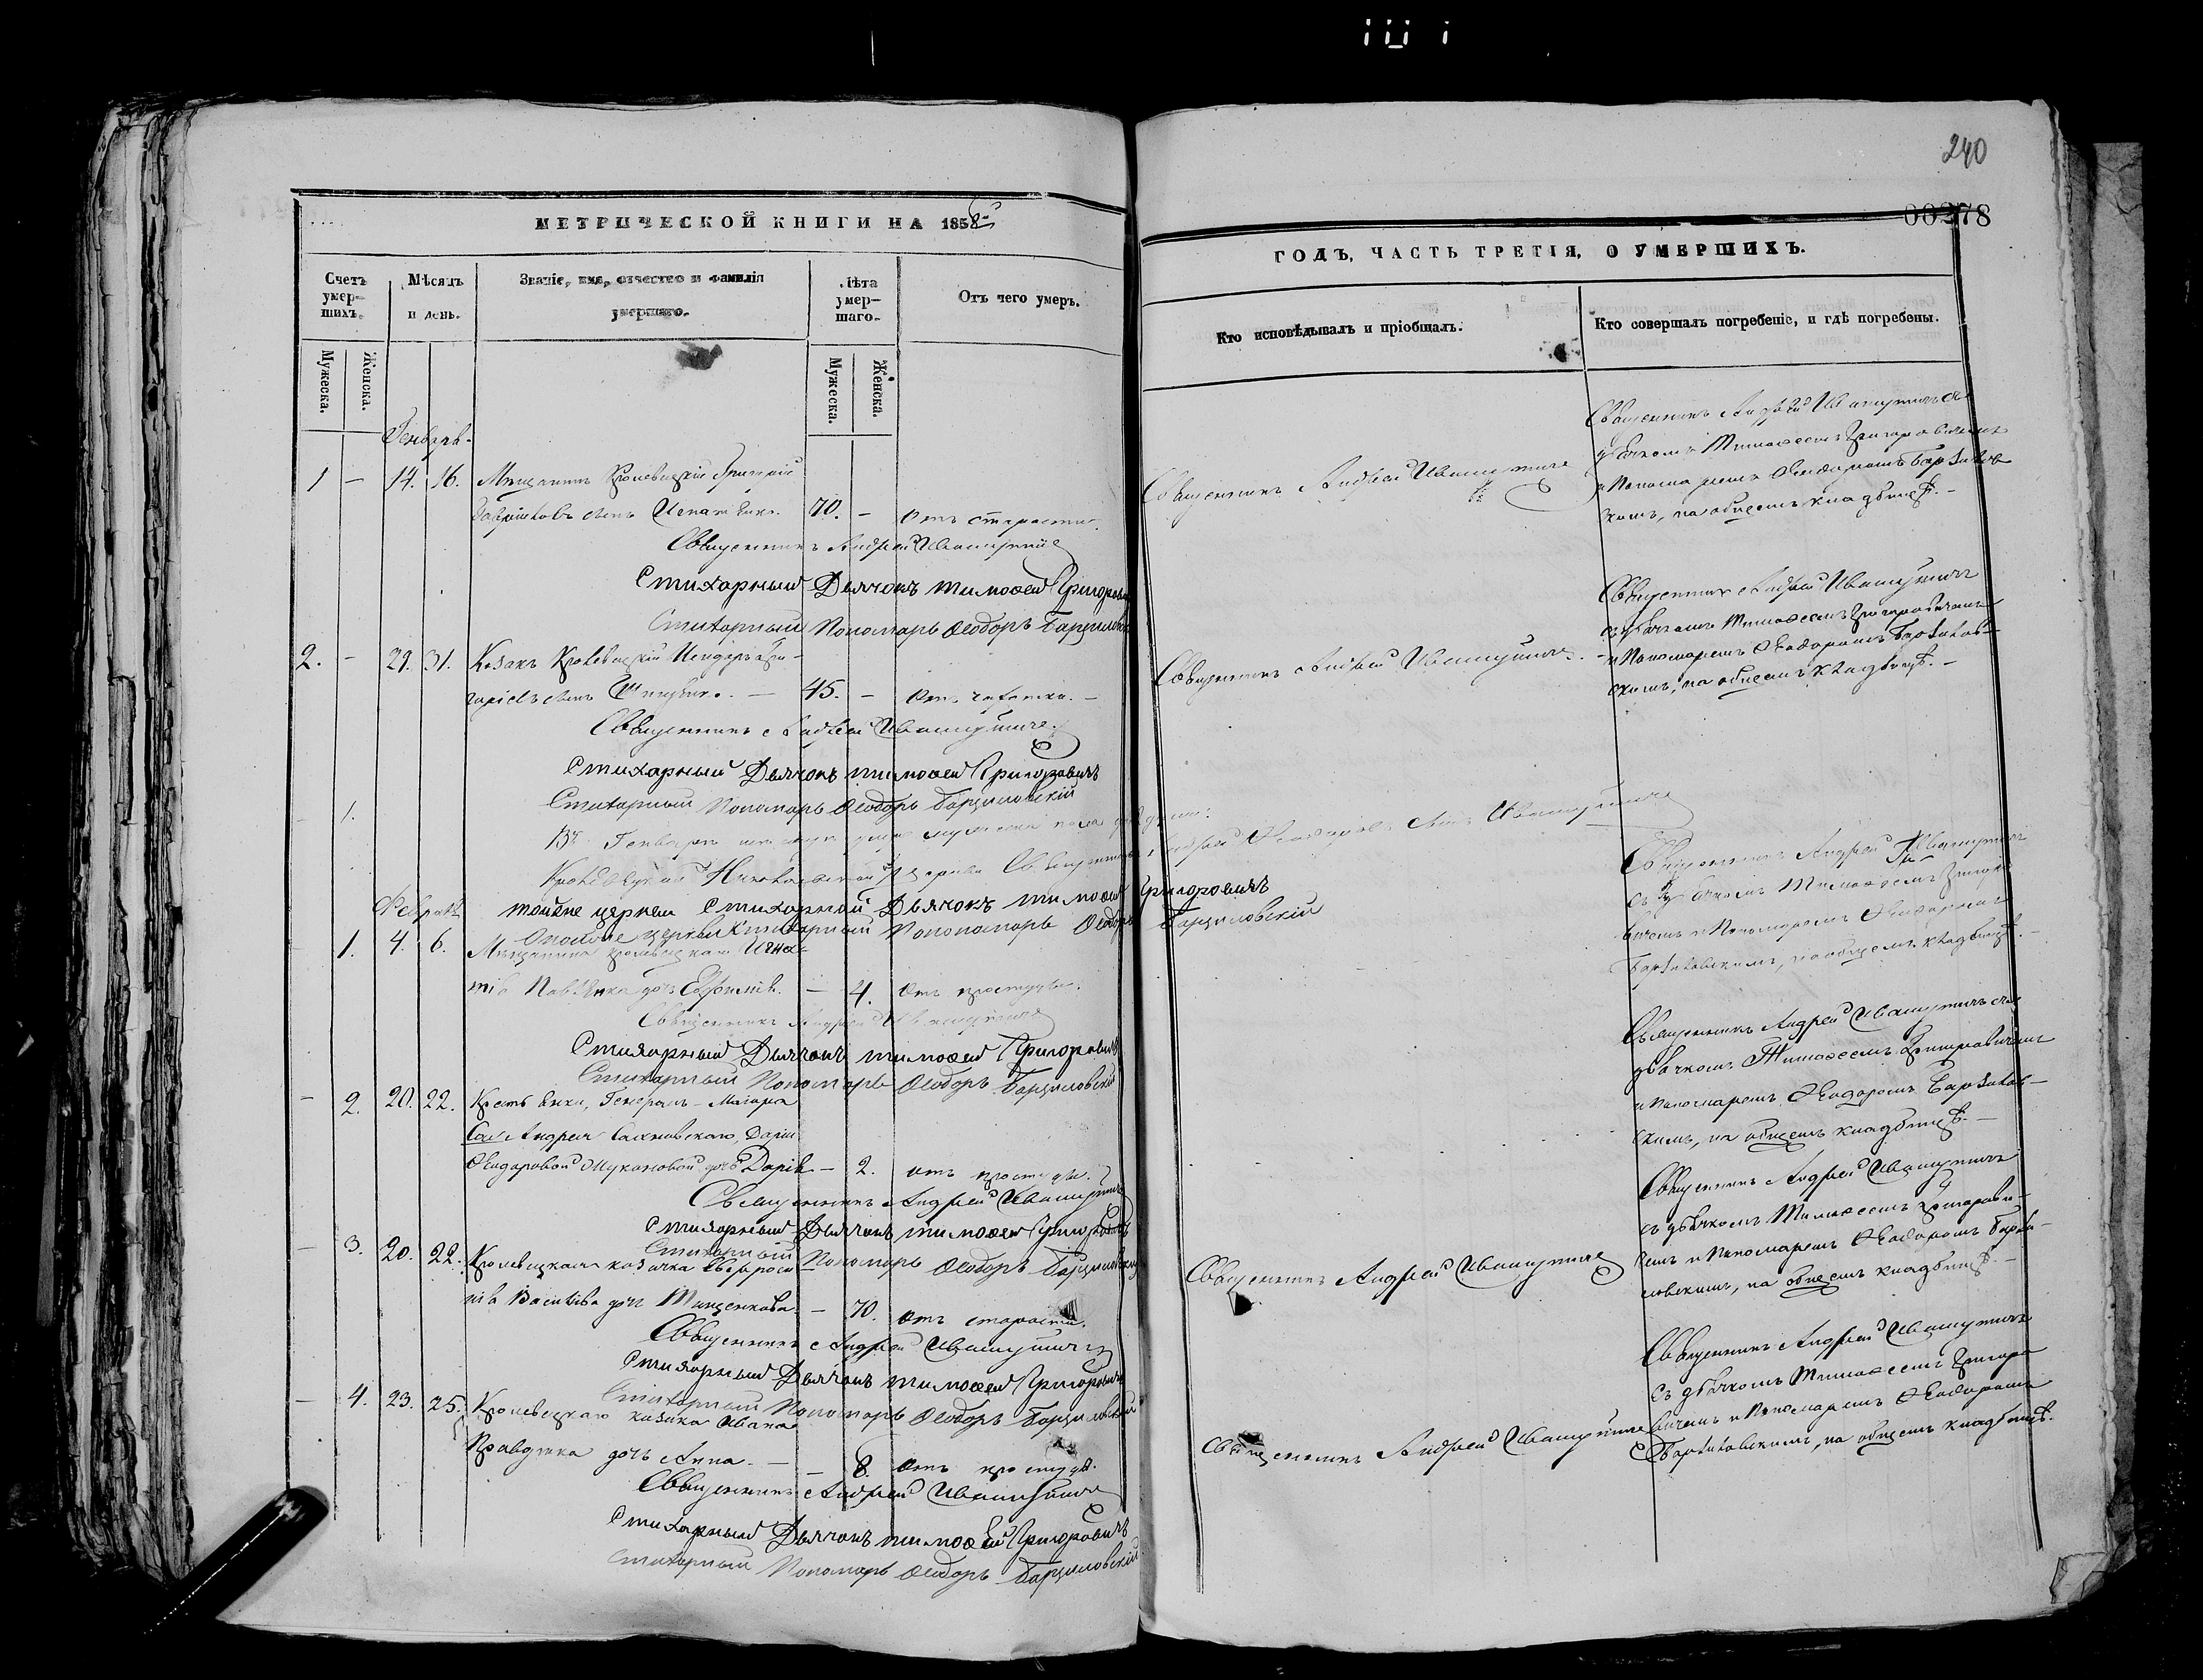 240
00278
МЕТРИЧЕСКОЙ КНИГИ НА 1858й
ГОДЪ, ЧАСТЬ ТРЕТІЯ, О УМЕРШИХЪ.
Счетъ умер-шихъ.
Мѣсяцъ и день.
Званіе, имя, отчество и фамилія умершаго.
Лѣта умер-шаго.
Отъ чего умеръ.
Кто исповѣдывалъ и пріобщалъ.
Кто совершалъ погребеніе, и гдѣ погребены.
Мужеска.
Женска.
Мужеска.
Женска.
Генварь.
1 — 14. 16. Мѣщанинъ Кролевецкій Григорій
сынъ 70. — Отъ старости.
Священникъ Андрей Ивашутичъ
Стихарный Дьячокъ Тимоѳей Григоровичъ
Стихарный Пономарь Ѳеодоръ Барзиловскій
Священникъ Андрей Ивашутичъ
Священникъ Андрей Ивашутичъ съ
дьячкомъ Тимоѳеемъ Григоровичемъ
и Пономаремъ Ѳеодоромъ Барзилов-
скимъ, на общемъ кладбищѣ. —
2. — 29. 31. Козакъ Кролевецкій
сынъ — 45. — Отъ чахотки. —
Священникъ Андрей Ивашутичъ
Стихарный Дьячокъ Тимоѳей Григоровичъ
Стихарный Пономарь Ѳеодоръ Барзиловскій
Священникъ Андрей Ивашутичъ. —
Священникъ Андрей Ивашутичъ
съ дьячкомъ Тимоѳеемъ Григоровичемъ
и Пономаремъ Ѳеодоромъ Барзилов-
скимъ, на общемъ кладбищѣ. —
Въ Генварѣ мужеска пола
Кролевецкой Николаевской церкви Священникъ Андрей Ѳеодоровъ сынъ Ивашутичъ
Тойже церкви Стихарный Дьячокъ Тимоѳей Григоровичъ
Тойже церкви Стихарный Пономарь Ѳеодоръ Барзиловскій
Февраль
— 1. 4. 6. Мѣщанина Кролевецкаго Игна-
тія дочь — 4. Отъ простуды.
Священникъ Андрей Ивашутичъ
Стихарный Дьячокъ Тимоѳей Григоровичъ
Стихарный Пономарь Ѳеодоръ Барзиловскій
Священникъ Андрей Ивашутичъ
съ дьячкомъ Тимоѳеемъ Григоро-
вичемъ и Пономаремъ Ѳеодоромъ
Барзиловскимъ, на общемъ кладбищѣ. —
— 2. 20. 22. Генералъ-Маіора
Андрея Сахновскаго, Даріи
Ѳеодоровой дочь Дарія — 2. отъ простуды.
Священникъ Андрей Ивашутичъ
Стихарный Дьячокъ Тимоѳей Григоровичъ
Стихарный Пономарь Ѳеодоръ Барзиловскій
Священникъ Андрей Ивашутичъ съ
дьячкомъ Тимоѳеемъ Григоровичемъ
и Пономаремъ Ѳеодоромъ Барзилов-
скимъ, на общемъ кладбищѣ. —
— 3. 20. 22. Кролевецкая козачка Евфроси-
нія Василіева дочь Тищенкова — 70. Отъ старости.
Священникъ Андрей Ивашутичъ
Стихарный Дьячокъ Тимоѳей Григоровичъ
Стихарный Пономарь Ѳеодоръ Барзиловскій
Священникъ Андрей Ивашутичъ
Священникъ Андрей Ивашутичъ
съ дьячкомъ Тимоѳеемъ Григорови-
чемъ и Пономаремъ Ѳеодоромъ Барзи-
ловскимъ, на общемъ кладбищѣ. —
— 4. 23. 25. Кролевецкаго козака Ивана
дочь Анна. — — 8. Отъ простуды.
Священникъ Андрей Ивашутичъ
Стихарный Дьячокъ Тимоѳей Григоровичъ
Стихарный Пономарь Ѳеодоръ Барзиловскій
Священникъ Андрей Ивашутичъ
Священникъ Андрей Ивашутичъ
съ дьячкомъ Тимоѳеемъ Григоро-
вичемъ и Пономаремъ Ѳеодоромъ
Барзиловскимъ, на общемъ кладбищѣ.